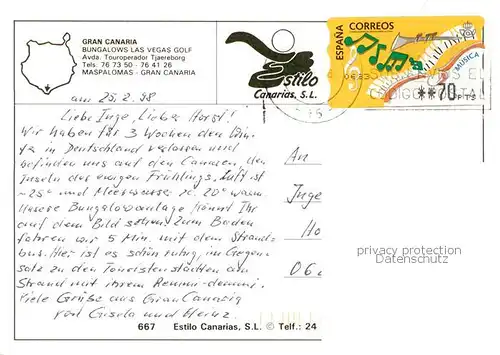 GRAN CANARIA
BUNGALOWS LAS VEGAS GOLF
Avda. Touroperador Tjaereborg
Tels: 76 73 50 - 76 41 26
MASPALOMAS - GRAN CANARIA
Estilo
Canarias, S.L.
ESPAÑA
CORREOS
MUSICA
**70 PTS
am 25.2.98
Liebe Inge, Lieber Horst!
Wir haben für 3 Wochen den Win-
ter in Deutschland verlassen und
befinden uns auf den Canaren, den
Inseln des ewigen Frühlings. Luft ist
~25° und Meerwasser 20° warm.
Unsere Bungalowanlage könnt Ihr
auf dem Bild sehen. Zum Baden
fahren wir 5 Min. mit dem Strand-
bus. Hier ist es schön ruhig, im Gegen-
satz zu den Touristenstädten am
Strand mit ihrem
Viele Grüße aus Gran Canaria
von Gisela und Heinz.
An
Inge
Ho
privacy protection
Datenschutz
667 Estilo Canarias, S.L. © Telf.: 24